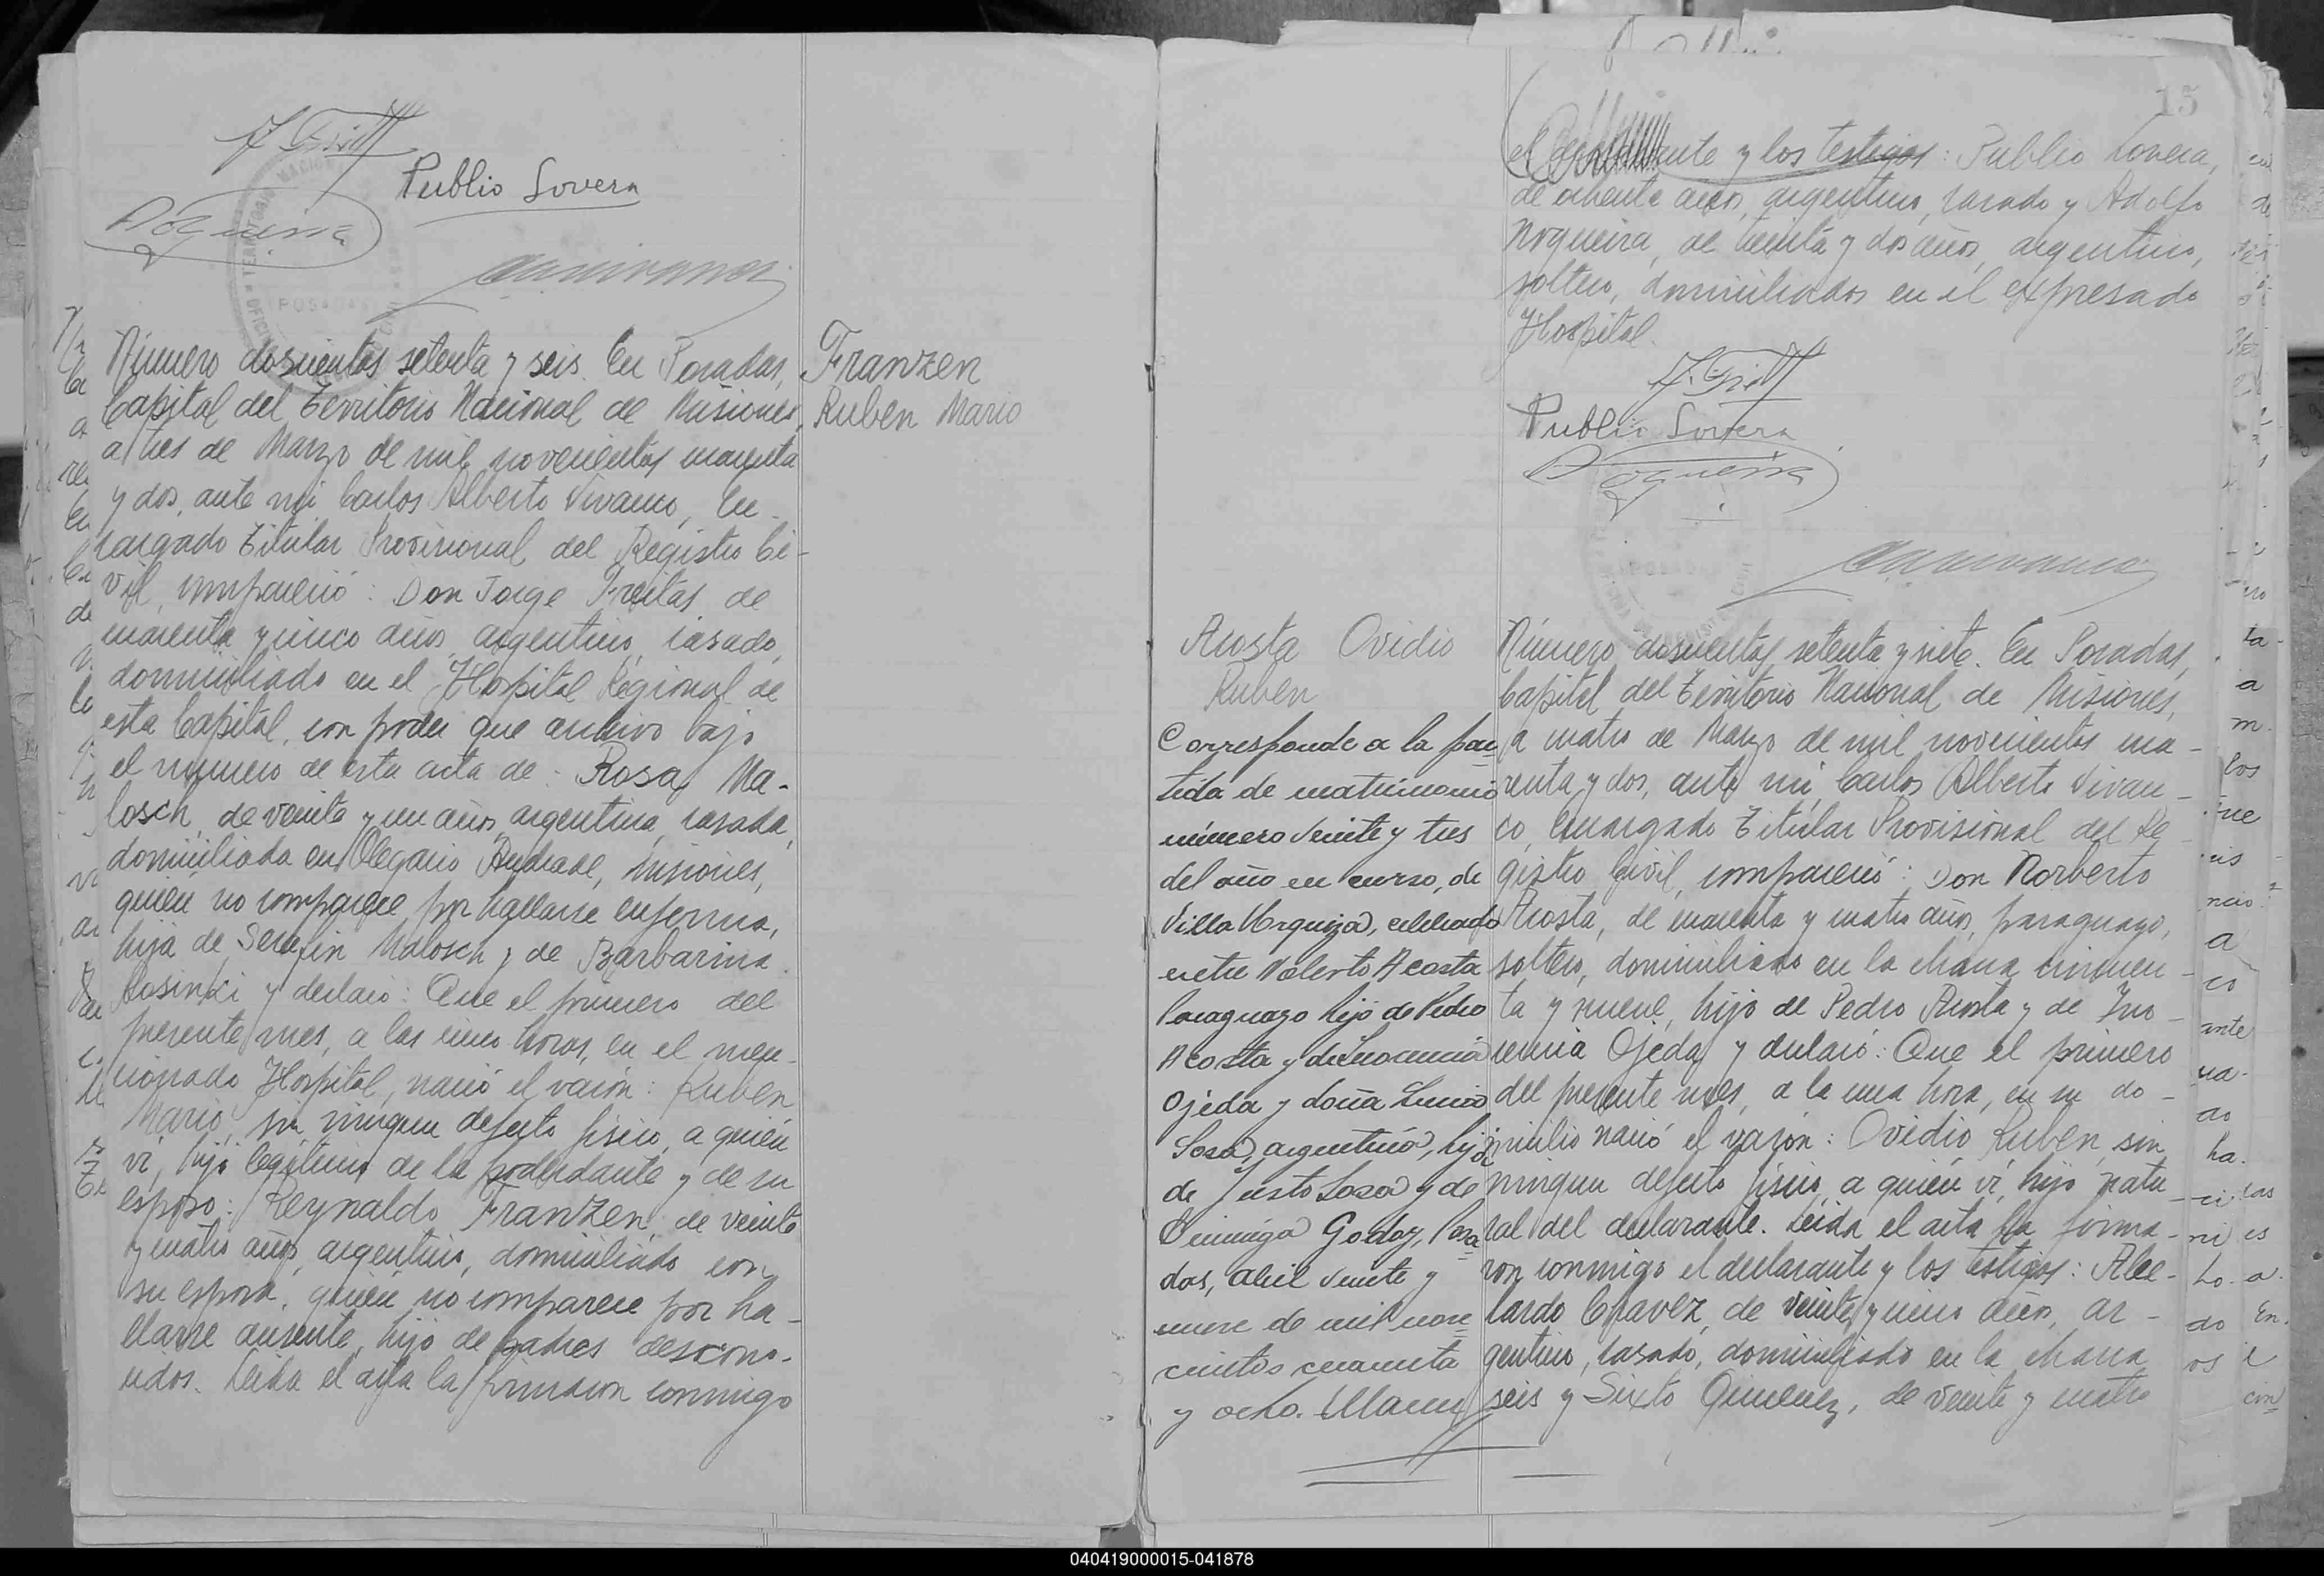 Publio Lovera
Número doscientos setenta y seis. En Posadas,
Capital del Territorio Nacional de Misiones,
a tres de Marzo de mil novecientos cuarenta
y dos, ante mi Carlos Alberto Vivanco, En-
cargado Titular Provisional del Registro Ci-
vil, compareció: Don Jorge Freitas, de
cuarenta y cinco años, argentino, casado,
domiciliado en el Hospital Regional de
esta Capital, con poder que archivo bajo
el número de esta acta de: Rosa Ma-
losch, de veinte y un años, argentina, casada,
domiciliada en Olegario Andrade, Misiones,
quién no comparece por hallarse enferma,
hija de Serefin Malosch y de Barbarina
Rosinki y declaró: Que el primero del
presente mes, a las cinco horas, en el men-
cionado Hospital, nació el varón: Ruben
Mario, sin ningun defecto físico, a quién
ví, hijo legítimo de la poderdante y de su
esposo: Reynaldo Franzen, de veinte
y cuatro años, argentino, domiciliado con
su esposa, quién no comparece por ha-
llarse ausente, hijo de padres descono-
cidos. Leida el acta la firmaron conmigo
Franzen
Ruben Mario
15
el y los testigos: Publio Lovera,
de ochenta años, argentino, casado y Adolfo
Nogueira, de treinta y dos años, argentino,
soltero, domiciliados en el expresado
Hospital.
Publio Lovera
Acosta Ovidio
Ruben
Corresponde a la par
tida de matrimonio
número veinte y tres
del año en curso, de
Villa Urquiza, celebrado
entre Nolerto Acosta
Paraguayo hijo de Pedro
Acosta y de Inocencia
Ojeda y doña Lucia
Sosa, argentina, hija
de Justo Sosa y de
Dominga Godoy, Posa
das, Abril veinte y
nueve de mil nove
cientos cuarenta
y ocho.
Número doscientos setenta y siete. En Posadas,
Capital del Territorio Nacional de Misiones,
a cuatro de Marzo de mil novecientos cua-
renta y dos, ante mi, Carlos Alberto Vivan-
co, Encargado Titular Provisional del Re-
gistro Civil, compareció: Don Norberto
Acosta, de cuarenta y cuatro años, paraguayo,
soltero, domiciliado en la chacra cincuen-
ta y nueve, hijo de Pedro Acosta y de Ino-
cencia Ojeda y declaró: Que el primero
del presente mes, a la una hora, en su do-
micilio nació el varón: Ovidio Ruben, sin
ningun defecto físico, a quién ví, hijo natu-
ral del declarante. Leida el acta la firma-
ron conmigo el declarante y los testigos: Abe-
lardo Chavez, de veinte y cinco años, ar-
gentino, casado, domiciliado en la chacra
seis y Sixto Gimenez, de veinte y cuatro
040419000015-041878